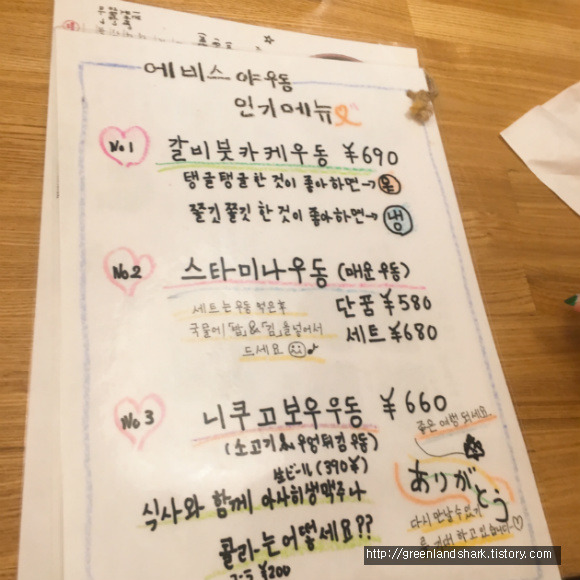 에비스야우동
인기메뉴
No1
갈비붓카케우동 ¥690
탱글탱글한 것이 좋아하면→온
쫄깃쫄깃한 것이 좋아하면→냉
No2
스타미나우동 (매운 우동)
단품 ¥580
세트 ¥680
세트는 우동 먹은후
국물에 「밥」&「김」을넣어서
드세요
No3
니쿠고보우우동 ¥660
(소고기&우엉튀김 우동)
生ビール (390¥)
식사와 함께 아사히생맥주나
콜라는 어떻세요??
¥200
좋은 여행 되세요.
ありがとう
다시 만날수있기
하고 있습니다♡
http://greenlandshark.tistory.com